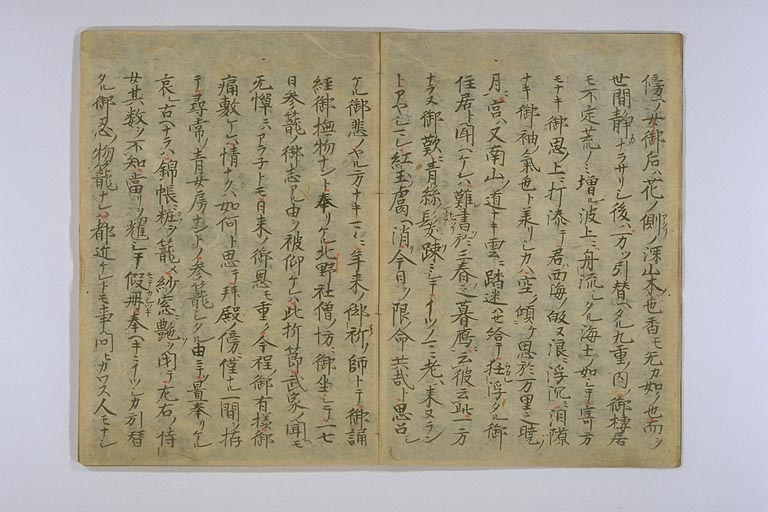 傍ノ女御后ハ花ノ側ノ深山木也香モ无カ如ノ也而ヲ
世間静ナラサリシ後ハ万ツ引替ヘタル九重ノ内ノ御棲居
モ不定荒ノミ増ル波上ニ舟流シタル海士ノ如シテ寄方
モナキ御思ノ上ニ打添テ君西海ノ皈又浪ニ浮沉ミ涓隙
ナキ御袖ノ氣也ト兼リシカハ空ノ傾ケ思於万里之暁ノ
月ニ宮ハ又南山ノ道トキ雲ニ踏迷ハセ給テ在浮タル御
住居ト聞ヘケレハ難書於三春之暮鴈云彼云此一方
ナラヌ御歎ニ青絲髪踈ニシテイツノ間ニ老ハ来ヌラン
トアヤシマレ紅玉膚ヘ消テ今日ヲ限ノ命共哉ト思召シ
ケル御悲ノヤル方ナキニハ年来ノ御祈ノ師トテ御誦
経御撫物ナント奉リケル北野社僧ノ坊ヘ御坐シテ一七
日参籠ノ御志アル由ヲ被仰ケレハ此折節武家ノ聞モ
无憚ニハアラネトモ日来ノ御恩モ重ク今程御有様御
痛敷ケレハ情ナクハ如何ト思テ拝殿ノ傍ニ僅ナル一間ヲ拵
テ尋常ノ青女房ナントノ参籠シタル由ニテ置奉リケル
哀レ古ヘナラハ錦帳粧ヲ籠メ紗窓艶ヲ閇テ左右ノ侍
女其数ヲ不知當リヲ耀シテ假册奉ヘキニイツシカ引替
タル御忍ノ物籠ナレハ都近ケレトモ事問ヒカワス人モナシ